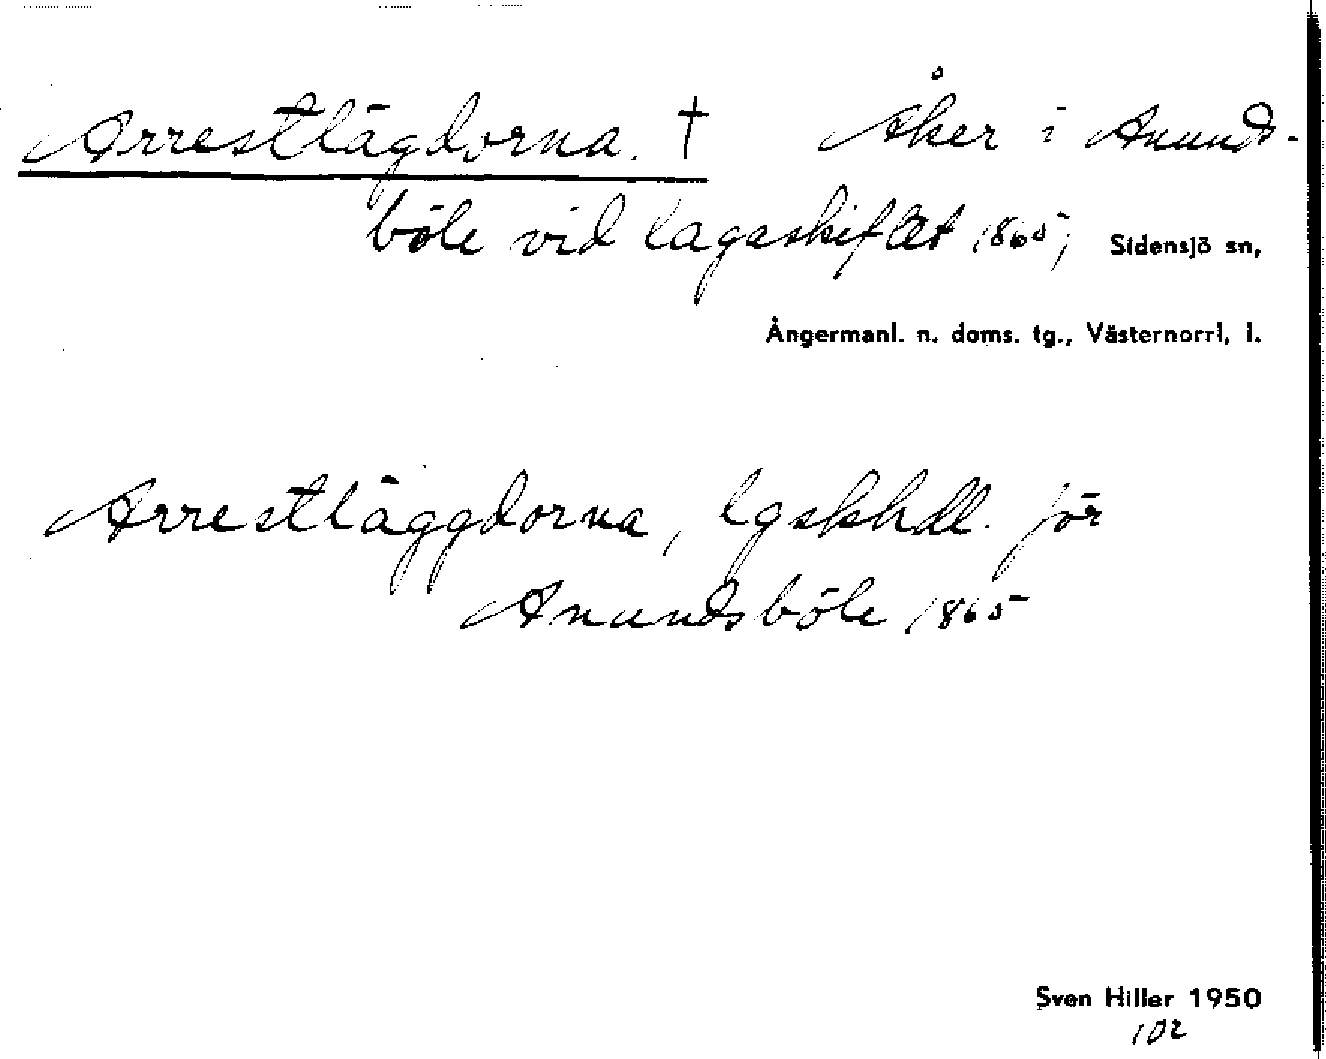 Arrestlägdorna. † Åker i Anunds-
böle vid lagaskiftet 1865; Sidensjö sn,
Ångermanl. n. doms. tg., Västernorrl. l.
Arrestläggdorna, lgskhdl. för
Anundsböle 1865
Sven Hiller 1950
102